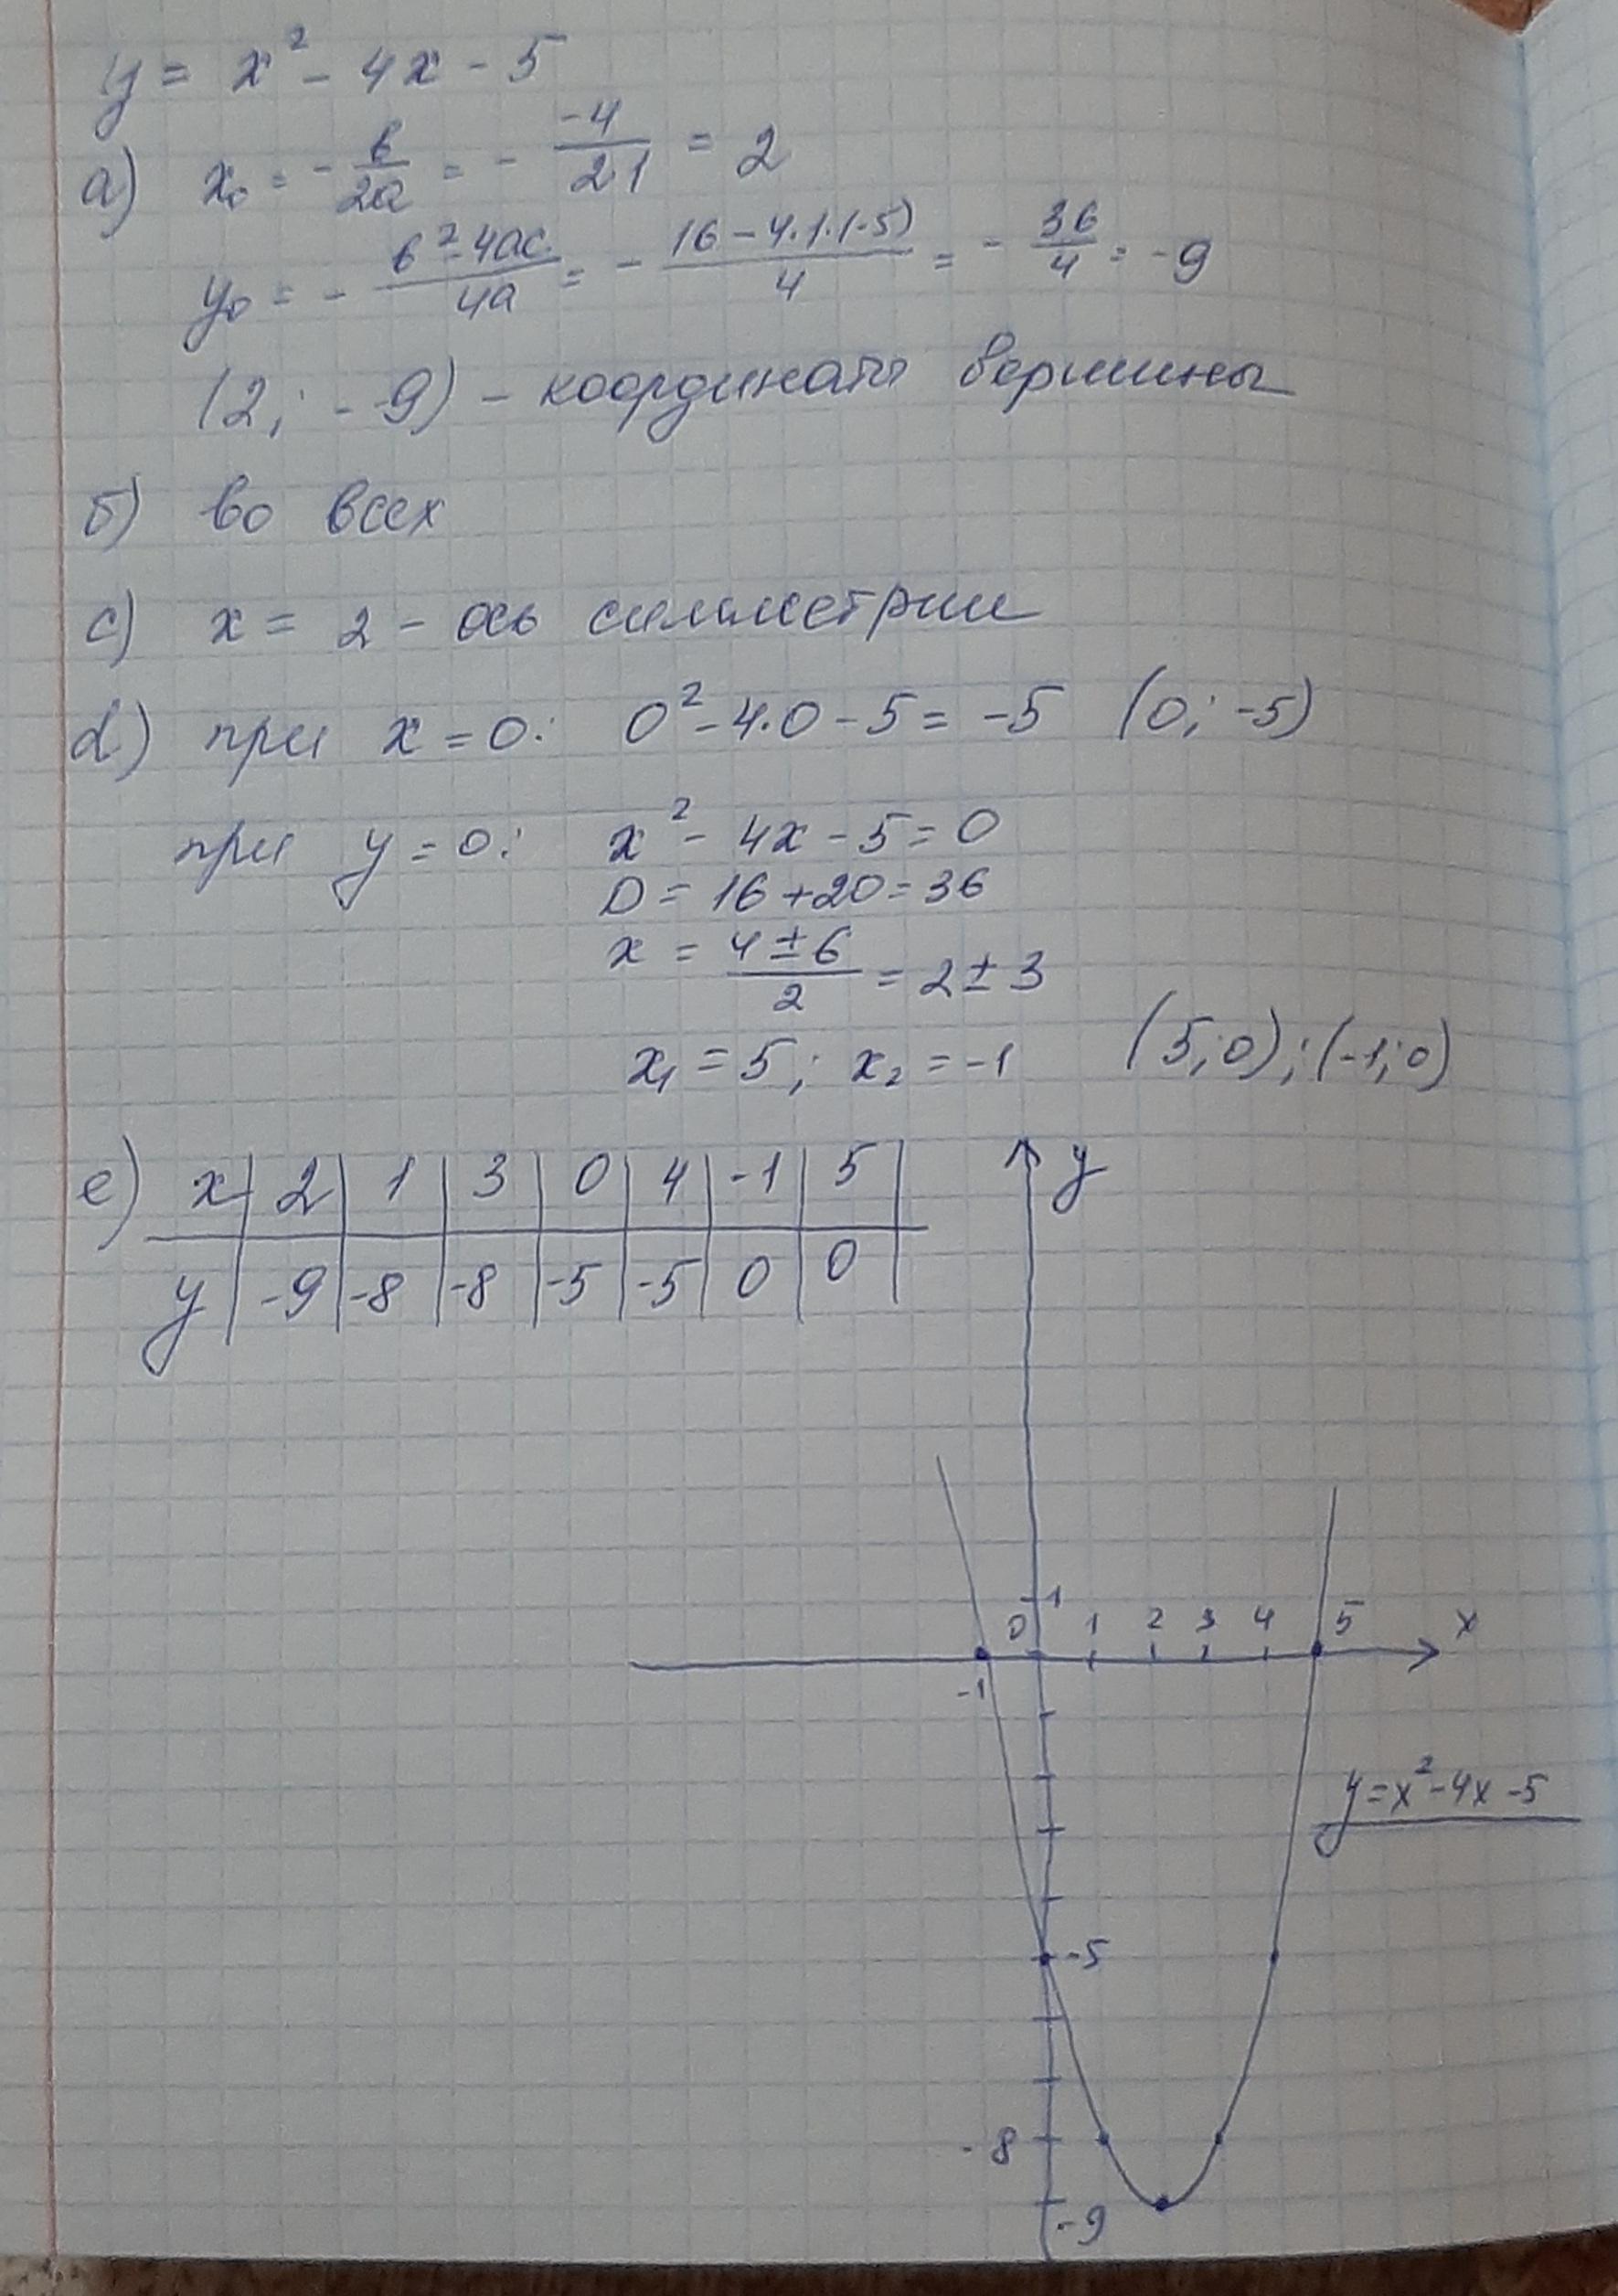 y = x² - 4x - 5
а) x₀ = - в/2а = - -4/2·1 = 2
y₀ = - в²-4ас/4а = - 16-4·1·(-5)/4 = - 36/4 = -9
(2; -9) - координаты вершины
б) во всех
c) x = 2 - ось симметрии
d) при x = 0: 0² - 4·0 - 5 = -5 (0; -5)
при y = 0: x² - 4x - 5 = 0
D = 16 + 20 = 36
x = 4 ± 6/2 = 2 ± 3
x₁ = 5; x₂ = -1 (5; 0); (-1; 0)
e) x | 2 | 1 | 3 | 0 | 4 | -1 | 5 |
y | -9 | -8 | -8 | -5 | -5 | 0 | 0 |
y
1
0 1 2 3 4 5 x
-1
y = x² - 4x - 5
-5
-8
-9